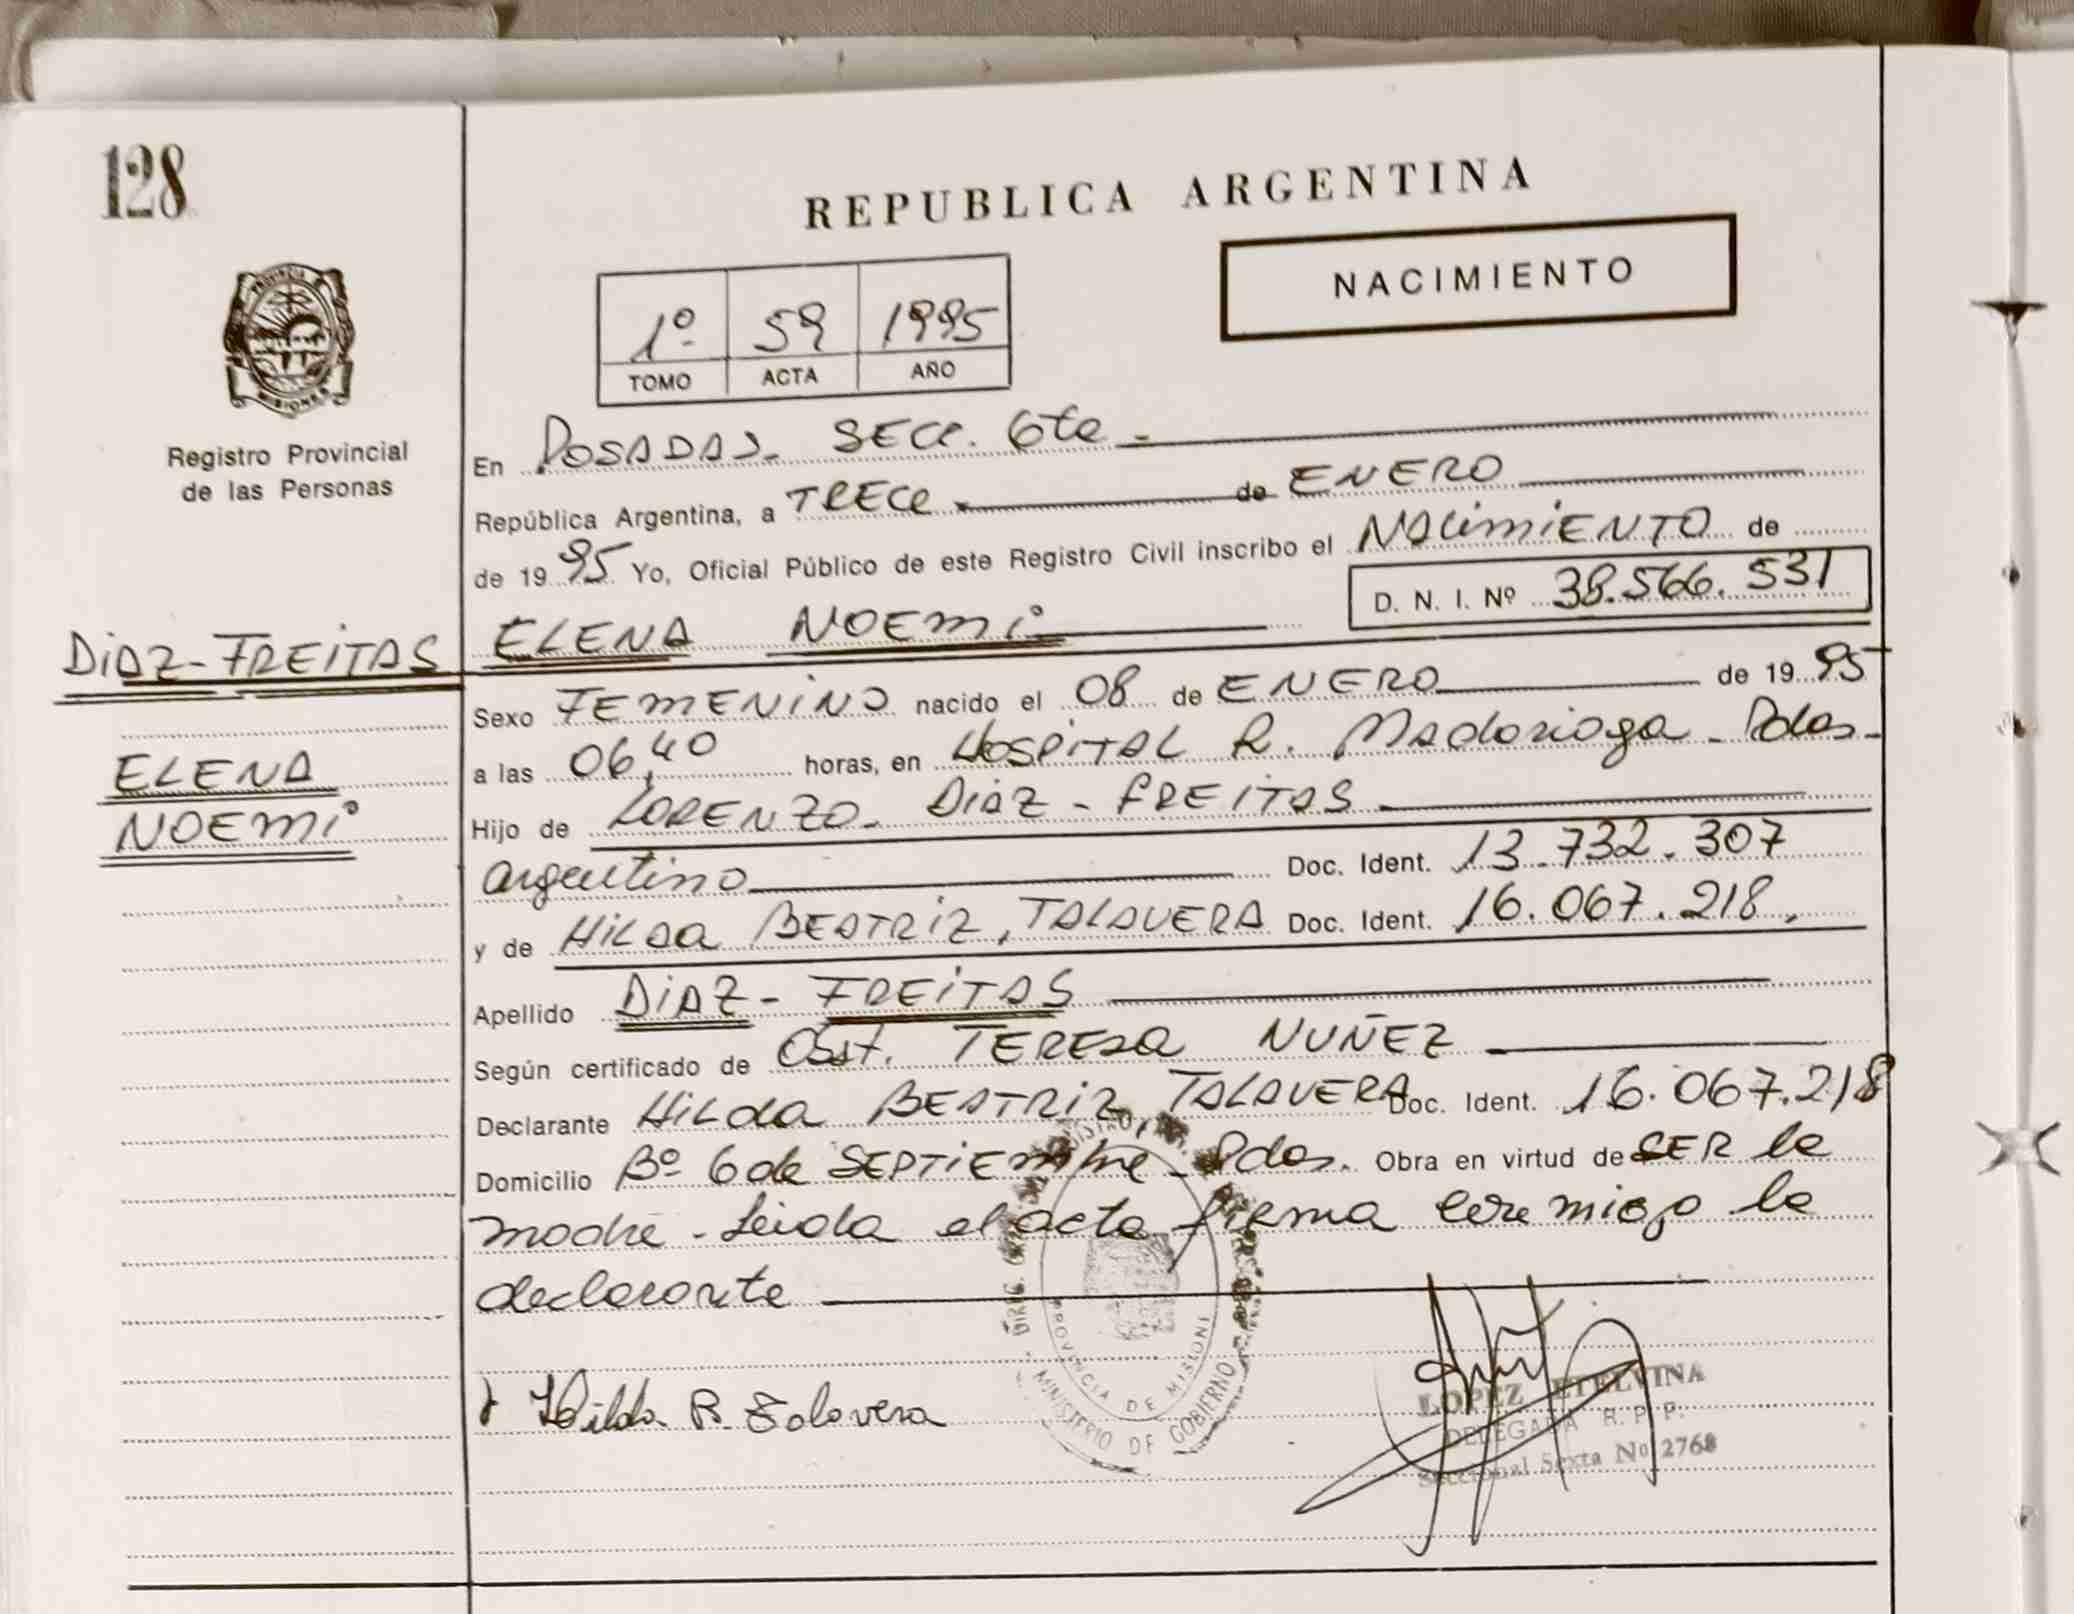 128
REPUBLICA ARGENTINA
NACIMIENTO
1º 59 1995
TOMO ACTA AÑO
PROVINCIA
MISIONES
Registro Provincial
de las Personas
En POSADAS- SECC. 6ta -
República Argentina, a TRECE - de ENERO
de 1995 Yo, Oficial Público de este Registro Civil inscribo el NACIMIENTO de
D. N. I. Nº 38.566.531
DIAZ-FREITAS ELENA NOEMI
Sexo FEMENINO nacido el 08 de ENERO de 1995
ELENA
NOEMI
a las 06,40 horas, en HOSPITAL R. Madariaga - Pdas-
Hijo de LORENZO- DIAZ - FREITAS
argentino Doc. Ident. 13.732.307
y de HILDA BEATRIZ, TALAVERA Doc. Ident. 16.067.218,
Apellido DIAZ- FREITAS
Según certificado de Obst. TERESA NUÑEZ
Declarante HILDA BEATRIZ, TALAVERA Doc. Ident. 16.067.218
Domicilio Bº 6 de SEPTIEMbre - Pdas. Obra en virtud de SER la
madre - Leida el acta firma conmigo la
declarante
Hilda B. Talavera
PROVINCIA DE MISIONES
MINISTERIO DE GOBIERNO
LOPEZ ETELVINA
DELEGADA R. P. P.
Seccional Sexta Nº 2768